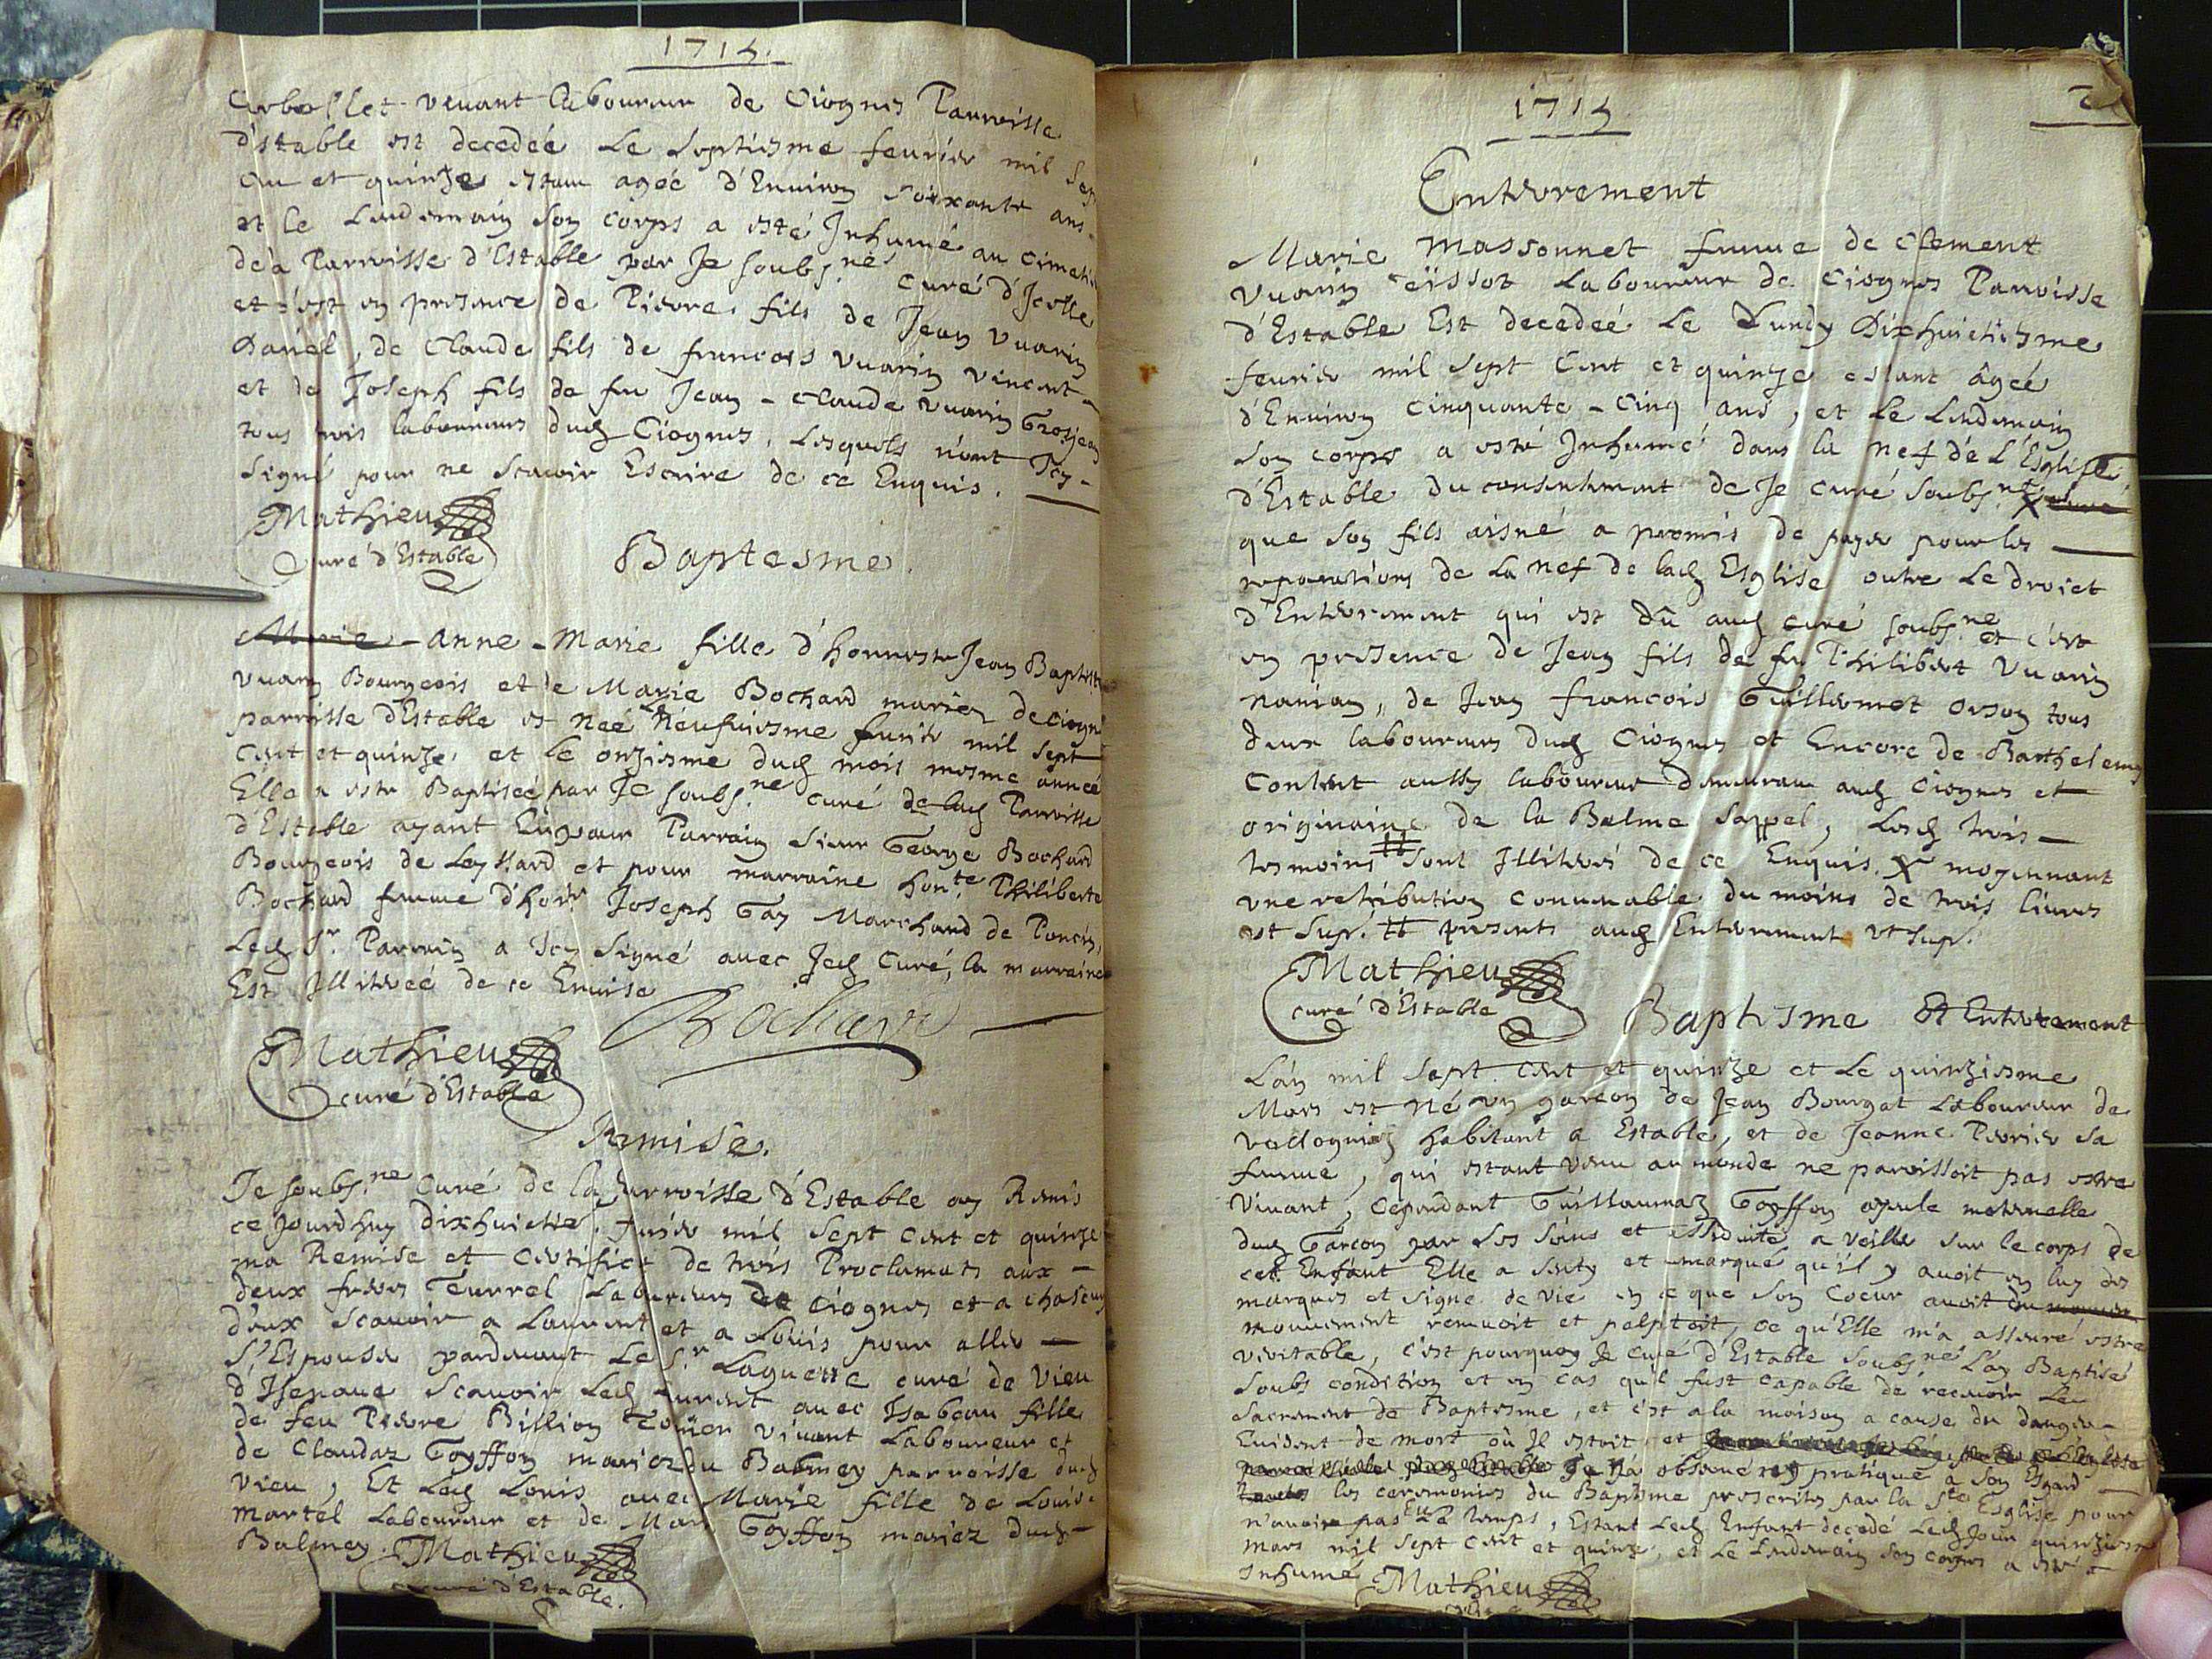 1715.
Corbollet vivant laboureur de Ciognes Parroisse
d'Estable est decedée Le Septiesme feurier mil Sept
et quinze estant agée d'Enuiron Soixante ans
et le Lendemain Son Corps a esté Inhumé au Cimeti
de a Parroisse d'Estable par Je soubs.né Curé d'Icelle
et c'est en presence de Pierre fils de Jean Vuarin
Daniel, de Claude fils de francois Vuarin Vincent
et de Joseph fils de fu Jean - Claude Vuarin Grosjean
tous trois laboureurs dud Ciognes, Lesquels n'ont Icy
Signé pour ne Scauoir Escrire de ce Enquis.
Mathieu
Curé d'Estable
Baptesme.
Marie - anne - Marie fille d'honneste Jean Baptiste
Vuarin Bourgeois et de Marie Bochard mariez de Ciogne
parroisse d'Estable est Neé Le Neufuiesme feurier mil Sept
Cent et quinze, et Le onziesme dud mois mesme année
Elle a esté Baptisée par Je soubs.né curé de lad Parroisse
d'Estable ayant Eu pour Parrain Sieur George Bochard
Bourgeois de Leyssard et pour marraine hon.te Philiberte
Bochard femme d'hon.te Joseph Gay Marchand de Poncin,
Led S.r Parrain a Icy Signé auec Jed Curé, la marraine
Est Illiterée de ce Enquise
Bochard
Mathieu
curé d'Estable
Remise.
Je soubs.né Curé de la Parroisse d'Estable ay Remis
ce Jourdhuy dixhuictie. feurier mil Sept Cent et quinze
ma Remise et Certificat de trois Proclamats aux
deux freres Turrel Laboureurs de Ciognes et a chascun
d'eux Scauoir a Laurent et a Loüis pour aller
S'Espouser pardeuant Le S.r Laguette curé de Vieu
d'Isenaue Scauoir Led Laurent auec Isabeau fille
de feu Pierre Billion Viuant Laboureur et
de Claudaz Goyffon mariez du Balmey parroisse dud
Vieu, Et Led Louis auec Marie fille de Louis
Martel Laboureur et de Marie Goyffon mariez dud
Balmey. Mathieu
curé d'Estable.
1715
2
Enterrement
Marie Massonnet femme de Clement
Vuarin Laboureur de Ciognes Parroisse
d'Estable Est decedeé Le Lundy Dixhuictiesme
feurier mil Sept Cent et quinze estant âgeé
d'Enuiron Cinquante - Cinq ans, et Le Lendemain
Son corps a esté Inhumé dans la nef de L'Esglise
d'Estable du consentement de Je curé Soubs.né X
que Son fils aisné a promis de payer pour les
reparations de La nef de lad Esglise outre Le droict
d'Enterrement qui est dû aud curé soubs.né et c'est
en presence de Jean fils de fu Philibert Vuarin
nanian, de Jean francois Guillermet orson tous
deux laboureurs dud Ciognes et Encore de Barthelemy
Contet aussy laboureur demeurant aud Ciognes et
originaire de la Balme Sappel, Lesd trois
tesmoins # Sont Illiterés de ce Enquis. X moyennant
une retribution Conuenable du moins de trois liures
ut Sup. # presents aud Enterrement ut Sup.
Mathieu
curé d'Estable
Baptesme Et Enterrement
L'an mil Sept Cent et quinze et Le quinziesme
Mars est Né un garcon de Jean Bourgat Laboureur de
Vollogniaz habitant a Estable, et de Jeanne Perrier Sa
femme, qui estant venu au monde ne paroissoit pas estre
Viuant, Cependant Guillaumaz Goyffon ayeule maternelle
dud Garcon par Ses Soins et assiduité a Veiller Sur le corps de
cet Enfant Elle a Senty et marqué qu'il y auoit en luy des
marques et Signe de vie en ce que Son Coeur auoit du mouuem
mouuement remuoit et palpitoit, ce qu'Elle m'a asseuré estre
veritable, c'est pourquoy Je Curé d'Estable Soubs.né L'ay Baptisé
Soubs condition et en cas qu'il fust capable de receuoir Le
Sacrement de Baptesme, et c'est a la maison a cause du danger
Euident de mort où Il estoit, et
Je n'a obserué ny pratiqué a Son Esgard
toutes les ceremonies du Baptesme prescrites par la S.te Esglise pour
n'auoir pas Eu Le temps, Estant Led Enfant decedé Led Jour quinziesme
Mars mil Sept Cent et quinze, et Le Lendemain Son Corps a esté
Inhumé Mathieu